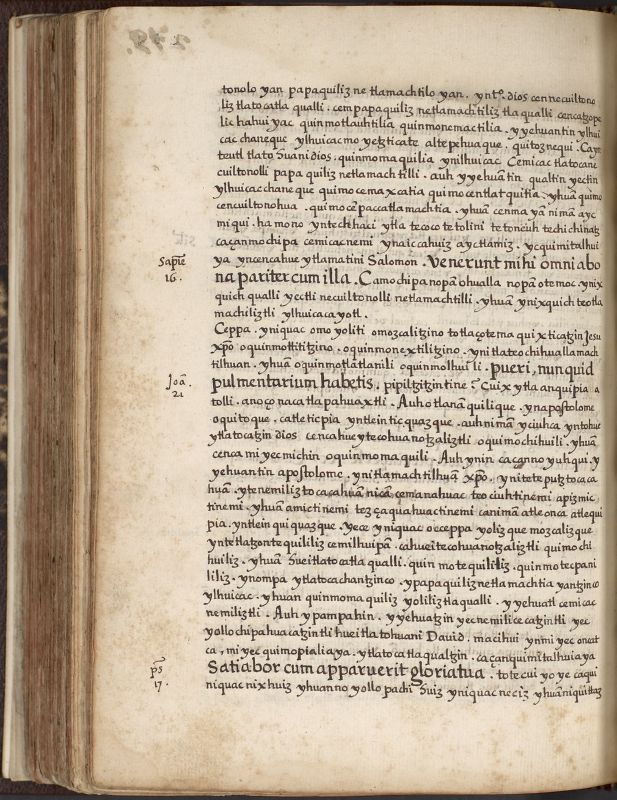 tonolo yan papaquiliz ne tlamachtilo yan. yntº. dios cen necuiltono
liz tlatocatla qualli. cem papaquiliz netlamachtiliz tla qualli cencatzope
lic hahui yac quin motlauhtilia quin monemactilia. y yehuantin ylhui
cac chaneque ylhuicac mo yetzticate altepehuaque. quitoznequi. Cayn
teutl tlatoani dios. quin moma quilia yn ilhuicac Cemicac tlatocane
cuiltonolli papa quiliz netlamachtilli. auh y yehuātin qualtin yectin
ylhuicac chane que qui mo cemaxcatia qui mo centlatquitia. yhuā quimo
cencuiltonohua. quimo cē paccatlamachtia. yhuā cenma yā nimā ayc
miqui. ha mo no yntech haci ytla tecoco tetolini te toneuh techichinatz
ca çan mochipa cemicac nemi ynaic cahuiz ayc tlamiz. yc quimitalhui
ya yn cencahue ytlamatini Salomon. Venerunt mihi omnia bo
Sapiē
16.
na pariter cum illa. Ca mochipa nopan ohualla nopan otemoc. ynix
quich qualli yectli necuiltonolli netlamachtilli. yhuan ynixquich teotla
machiliztli ylhuicacayotl.
Ceppa. yniquac omo yoliti omozcalitzino totlaçotemaqui xticatzin Jesu
xpō oquin mottititzino. oquin monextilitzino. yn itlateochihuallamach
tilhuan. yhuā oquin motlatlanili oquin molhui li. pueri, nunquid
Joā.
21
pulmentarium habetis. pipiltzitzintine? Cuix ytla anquipia a
tolli. anoço nacatlapahuaxtli. Auh otlananquilique. yn apostolome
oquitoque. ca tle ticpia yntlein ticquazque. auh niman yciuhca yntohue
ytlatocatzin dios cencahueytecohuanotzaliztli oquimochihuili. yhuā
cenca miyec michin oquinmomaquili. Auh ynin ca çanno yuhqui. y
yehuantin apostolome. yn itlamachtilhuā xpō. yn iteteputztocaca
huā. yte nemiliz tocacahuā nicā cemanahuac teociuhtinemi apizmic
tinemi. yhuā amictinemi teçaquahuactinemi canimā atle onca atlequi
pia. yntlein quiquazque. yece yniquac occeppa yolizque mozcalizque
yntetlatzontequililiz cemilhuipā. ca huei tecohuanotzaliztli quimochi
huiliz. yhuā huei tlatocatla qualli. quin motequililiz. quinmotecpani
liliz. ynompa ytlatocachantzinco. ypapaquiliznetlamachtiayantzinco
ylhuicac. yhuan quinmomaquiliz yoliliztlaqualli. y yehuatl cemicac
nemiliztli. Auh ypampa hin. y yehuatzin yecnemilicecatzintli yec
yollochipahuacatzintli huei tlatohuani Dauid. macihui yn miyec oncat
ca, miyec quimopialiaya. ytlatocatlaqualtzin. ca çan quimitalhuiaya
Satiabor cum apparuerit gloria tua. totecuiyo ye caqui
ps
17.
niquac nixhuiz yhuan no yollo pachihuiz yniquac neciz yhuā niquittaz